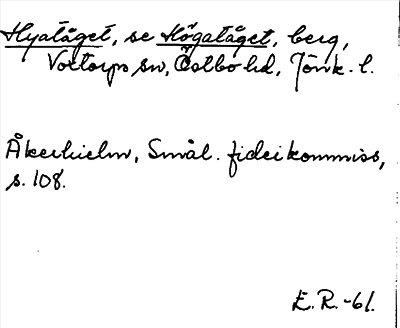 Hyatåget, se Högatåget, berg,
Voxtorps sn, Östbo hd, Jönk. l.
Åkerhielm, Smål. fideikommiss,
s. 108.
E. R. -61.